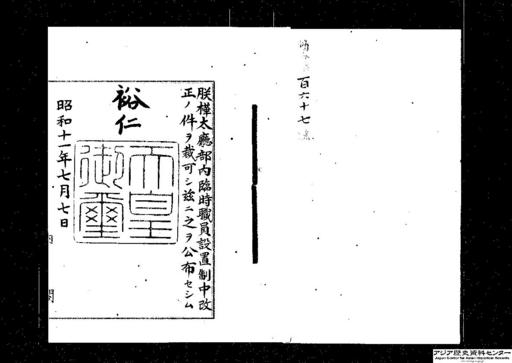 百六十七
朕樺太廳部內臨時職員設置制中改
正ノ件ヲ裁可シ玆ニ之ヲ公布セシム
裕仁
天皇
御璽
昭和十一年七月七日
アジア歴史資料センター
Japan Center for Asian Historical Records